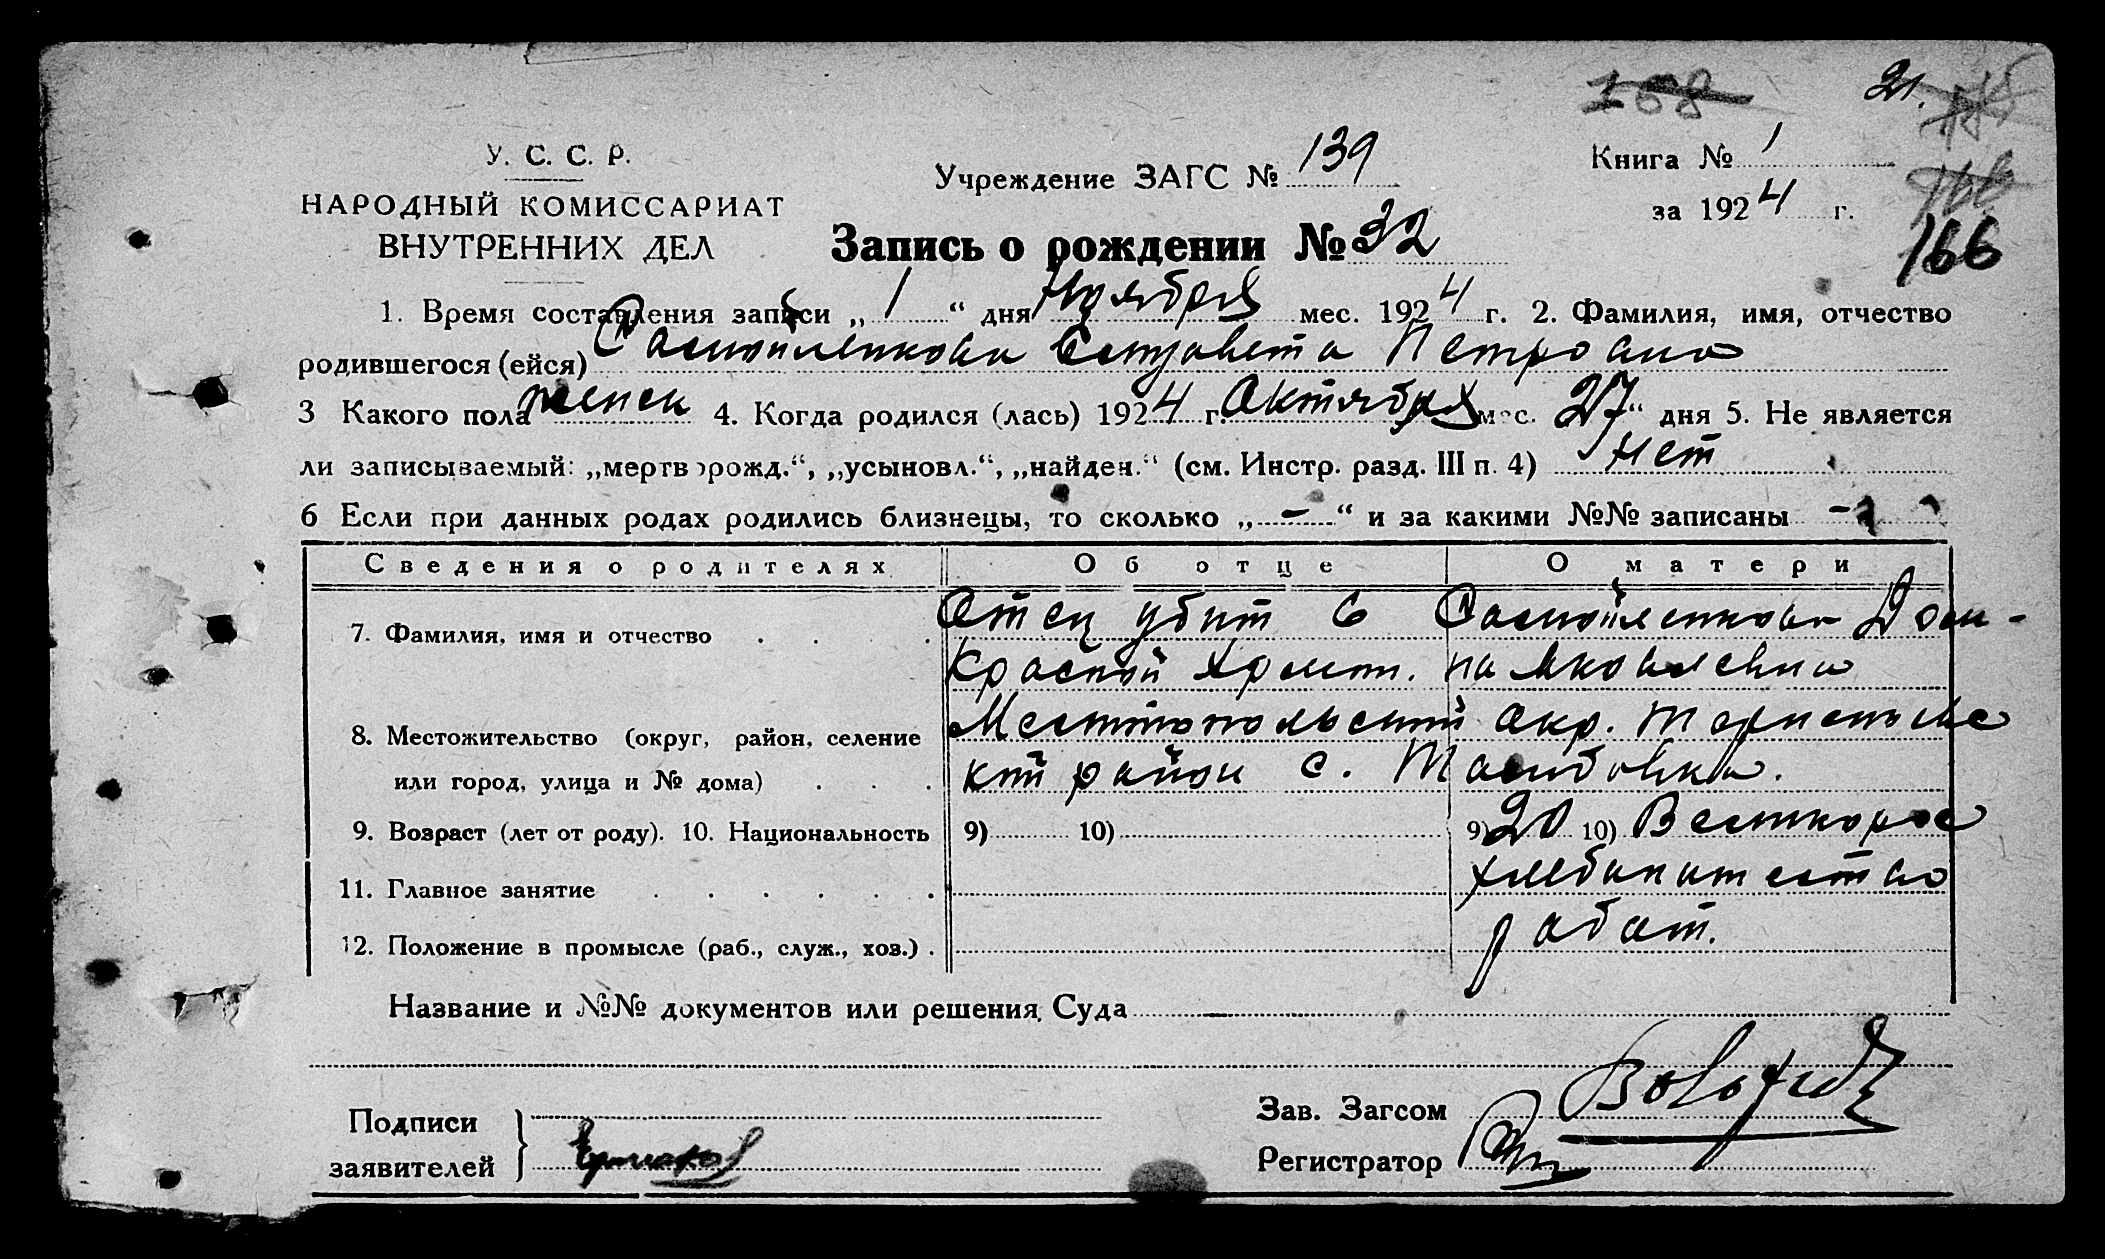 168
21.
У. С. С. Р.
НАРОДНЫЙ КОМИССАРИАТ
ВНУТРЕННИХ ДЕЛ
Учреждение ЗАГС № 139
Книга № 1
за 1924 г.
166
Запись о рождении № 32
1. Время составления записи „ 1 “ дня Ноября мес. 1924 г. 2. Фамилия, имя, отчество
родившегося (ейся) Елизавета Петровна
3 Какого пола женск 4. Когда родился (лась) 1924 г. Октября мес. 27“ дня 5. Не является
ли записываемый: „мертворожд.“, „усыновл.“, „найден.“ (см. Инстр. разд. III п. 4) нет
6 Если при данных родах родились близнецы, то сколько „ - “ и за какими №№ записаны -
Сведения о родителях
Об отце
О матери
7. Фамилия, имя и отчество
Отец убит в
Красной Армии.
Дом-
на Яковлевна
8. Местожительство (округ, район, селение
или город, улица и № дома)
окр.
район с.
9. Возраст (лет от роду). 10. Национальность
9) 10)
9) 20 10) Великорос
11. Главное занятие
хлебопашество
12. Положение в промысле (раб., служ., хоз.)
работ.
Название и №№ документов или решения Суда —
Подписи
заявителей
Ермаков
Зав. Загсом
Регистратор